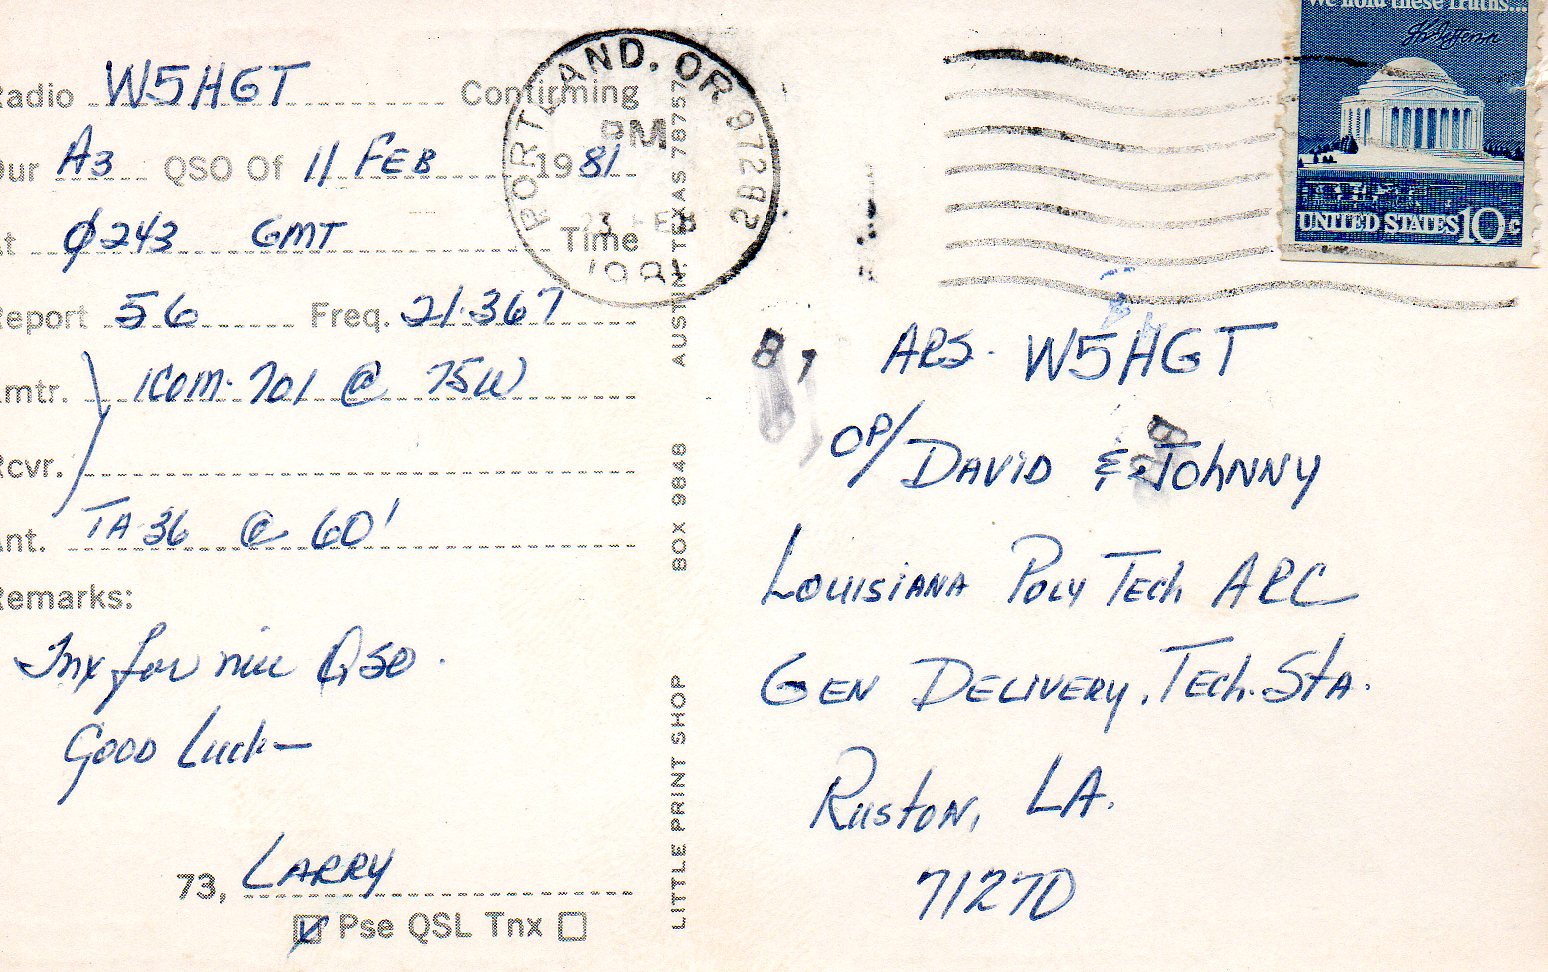 Radio W5HGT Confirming
Our A3 QSO Of 11 FEB 1981
At Ø243 GMT Time
Report 56 Freq. 21.367
Xmtr. ICOM-701 @ 75W
Rcvr.
Ant. TA-36 @ 60'
Remarks:
Tnx for nice QSO.
Good Luck—
73, LARRY
Pse QSL Tnx
LITTLE PRINT SHOP BOX 9848 AUSTIN, TEXAS 78757
PORTLAND, OR 97282
PM
23 FEB
1981
We hold these Truths...
Th Jefferson
UNITED STATES 10c
ARS. W5HGT
OP/ DAVID & JOHNNY
LOUISIANA POLY TECH ARC
GEN DELIVERY, TECH. STA.
RUSTON, LA.
71270